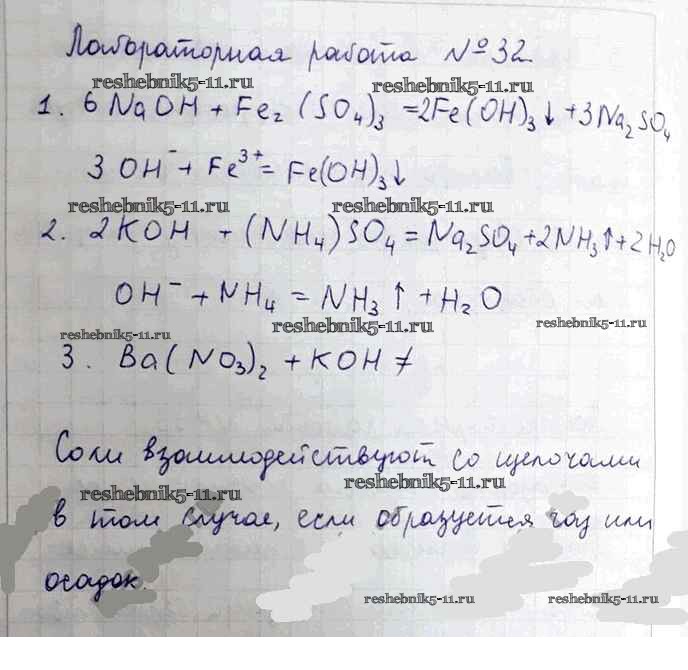 Лабораторная работа №32
reshebnik5-11.ru reshebnik5-11.ru
1. 6NaOH + Fe₂(SO₄)₃ =2Fe(OH)₃↓ +3Na₂SO₄
3OH⁻ + Fe³⁺ = Fe(OH)₃↓
reshebnik5-11.ru reshebnik5-11.ru
2. 2KOH + (NH₄)SO₄ = Na₂SO₄ + 2NH₃↑ + 2H₂O
OH⁻ + NH₄ = NH₃↑ + H₂O
reshebnik5-11.ru reshebnik5-11.ru reshebnik5-11.ru
3. Ba(NO₃)₂ + KOH ≠
Соли взаимодействуют со щелочами
reshebnik5-11.ru reshebnik5-11.ru
в том случае, если образуется газ или
осадок.
reshebnik5-11.ru reshebnik5-11.ru